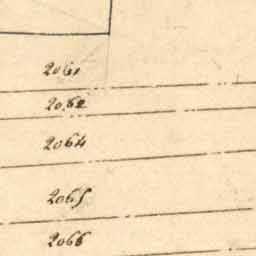 2061
2062
2064
2065
2066